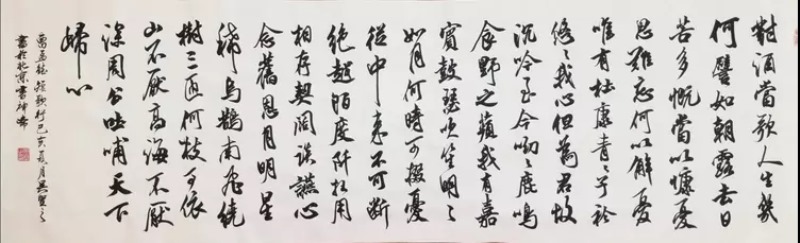 對酒當歌人生幾
何譬如朝露去日
苦多慨當以慷憂
思難忘何以解憂
唯有杜康青々子衿
悠々我心但為君故
沉吟至今呦々鹿鳴
食野之蘋我有嘉
賓鼓瑟吹笙明々
如月何時可掇憂
從中來不可斷
絕越陌度阡枉用
相存契闊談讌心
念舊恩月明星
稀烏鵲南飛繞
樹三匝何枝可依
山不厭高海不厭
深周公吐哺天下
歸心
曹孟德短歌行己亥夏月
書於北京